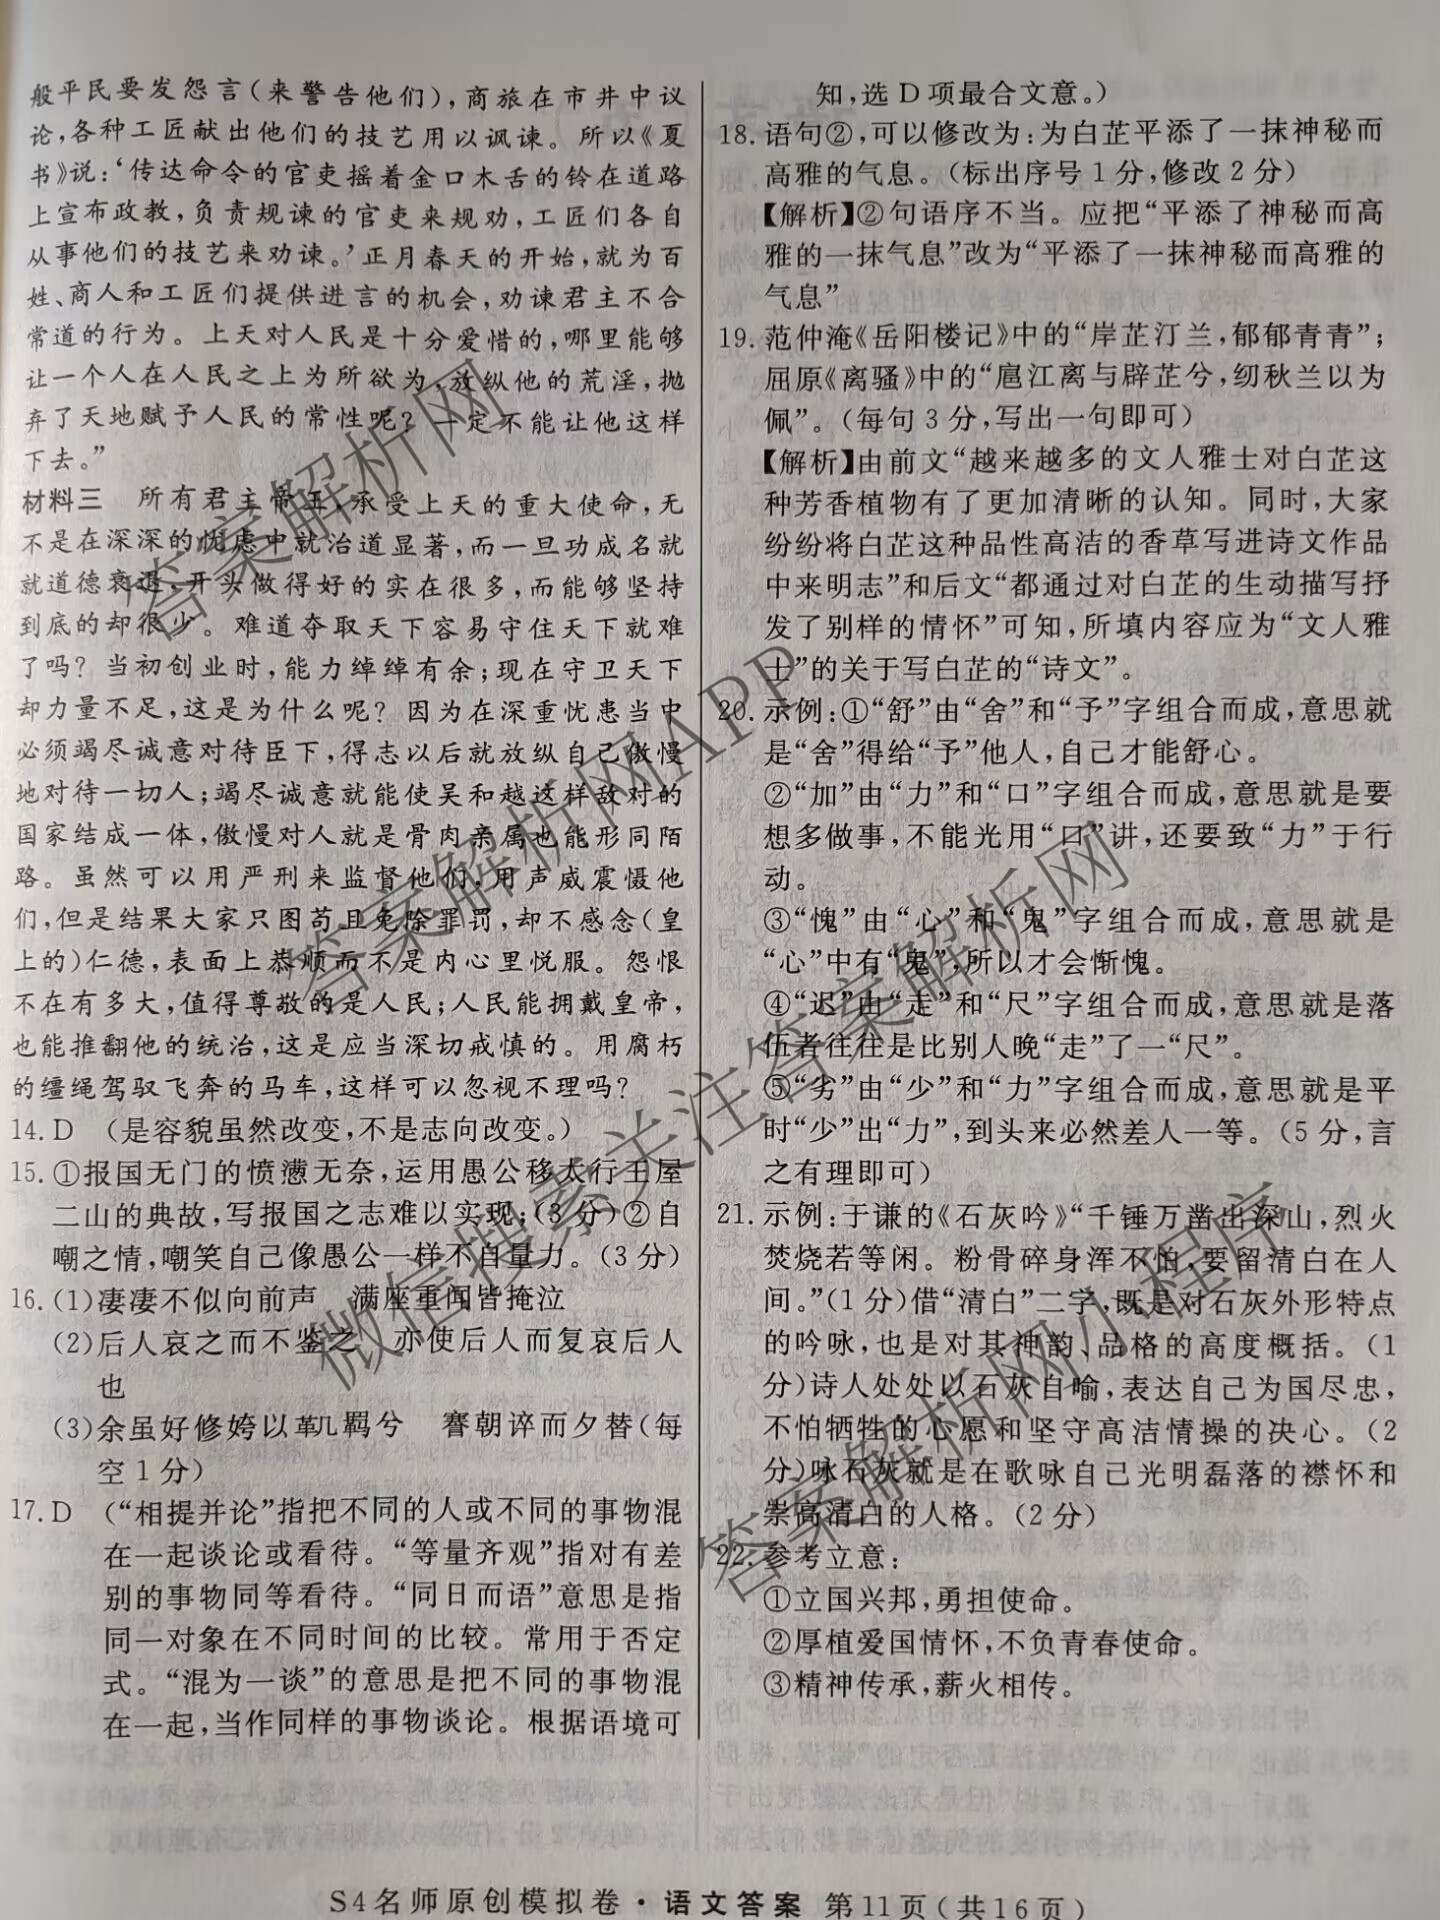 般平民要发怨言(来警告他们),商旅在市井中议
论,各种工匠献出他们的技艺用以讽谏。所以《夏
书》说:‘传达命令的官吏摇着金口木舌的铃在道路
上宣布政教,负责规谏的官吏来规劝,工匠们各自
从事他们的技艺来劝谏。’正月春天的开始,就为百
姓、商人和工匠们提供进言的机会,劝谏君主不合
常道的行为。上天对人民是十分爱惜的,哪里能够
让一个人在人民之上为所欲为,放纵他的荒淫,抛
弃了天地赋予人民的常性呢?一定不能让他这样
下去。”
材料三 所有君主帝王,承受上天的重大使命,无
不是在深深的忧虑中就治道显著,而一旦功成名就
就道德衰退,开头做得好的实在很多,而能够坚持
到底的却很少。难道夺取天下容易守住天下就难
了吗?当初创业时,能力绰绰有余;现在守卫天下
却力量不足,这是为什么呢?因为在深重忧患当中
必须竭尽诚意对待臣下,得志以后就放纵自己傲慢
地对待一切人;竭尽诚意就能使吴和越这样敌对的
国家结成一体,傲慢对人就是骨肉亲属也能形同陌
路。虽然可以用严刑来监督他们,用声威震慑他
们,但是结果大家只图苟且免除罪罚,却不感念(皇
上的)仁德,表面上恭顺而不是内心里悦服。怨恨
不在有多大,值得尊敬的是人民;人民能拥戴皇帝,
也能推翻他的统治,这是应当深切戒慎的。用腐朽
的缰绳驾驭飞奔的马车,这样可以忽视不理吗?
14. D (是容貌虽然改变,不是志向改变。)
15. ①报国无门的愤懑无奈,运用愚公移太行王屋
二山的典故,写报国之志难以实现;(3分)②自
嘲之情,嘲笑自己像愚公一样不自量力。(3分)
16. (1)凄凄不似向前声 满座重闻皆掩泣
(2)后人哀之而不鉴之 亦使后人而复哀后人
也
(3)余虽好修姱以鞿羁兮 謇朝谇而夕替(每
空1分)
17. D (“相提并论”指把不同的人或不同的事物混
在一起谈论或看待。“等量齐观”指对有差
别的事物同等看待。“同日而语”意思是指
同一对象在不同时间的比较。常用于否定
式。“混为一谈”的意思是把不同的事物混
在一起,当作同样的事物谈论。根据语境可
知,选D项最合文意。)
18. 语句②,可以修改为:为白芷平添了一抹神秘而
高雅的气息。(标出序号1分,修改2分)
【解析】②句语序不当。应把“平添了神秘而高
雅的一抹气息”改为“平添了一抹神秘而高雅的
气息”
19. 范仲淹《岳阳楼记》中的“岸芷汀兰,郁郁青青”;
屈原《离骚》中的“扈江离与辟芷兮,纫秋兰以为
佩”。(每句3分,写出一句即可)
【解析】由前文“越来越多的文人雅士对白芷这
种芳香植物有了更加清晰的认知。同时,大家
纷纷将白芷这种品性高洁的香草写进诗文作品
中来明志”和后文“都通过对白芷的生动描写抒
发了别样的情怀”可知,所填内容应为“文人雅
士”的关于写白芷的“诗文”。
20. 示例:①“舒”由“舍”和“予”字组合而成,意思就
是“舍”得给“予”他人,自己才能舒心。
②“加”由“力”和“口”字组合而成,意思就是要
想多做事,不能光用“口”讲,还要致“力”于行
动。
③“愧”由“心”和“鬼”字组合而成,意思就是
“心”中有“鬼”,所以才会惭愧。
④“迟”由“走”和“尺”字组合而成,意思就是落
伍者往往是比别人晚“走”了一“尺”。
⑤“劣”由“少”和“力”字组合而成,意思就是平
时“少”出“力”,到头来必然差人一等。(5分,言
之有理即可)
21. 示例:于谦的《石灰吟》“千锤万凿出深山,烈火
焚烧若等闲。粉骨碎身浑不怕,要留清白在人
间。”(1分)借“清白”二字,既是对石灰外形特点
的吟咏,也是对其神韵、品格的高度概括。(1
分)诗人处处以石灰自喻,表达自己为国尽忠,
不怕牺牲的心愿和坚守高洁情操的决心。(2
分)咏石灰就是在歌咏自己光明磊落的襟怀和
崇高清白的人格。(2分)
22. 参考立意:
①立国兴邦,勇担使命。
②厚植爱国情怀,不负青春使命。
③精神传承,薪火相传。
S4名师原创模拟卷·语文答案 第11页(共16页)
答案解析网
答案解析网APP
微信搜索关注答案解析网
答案解析网小程序